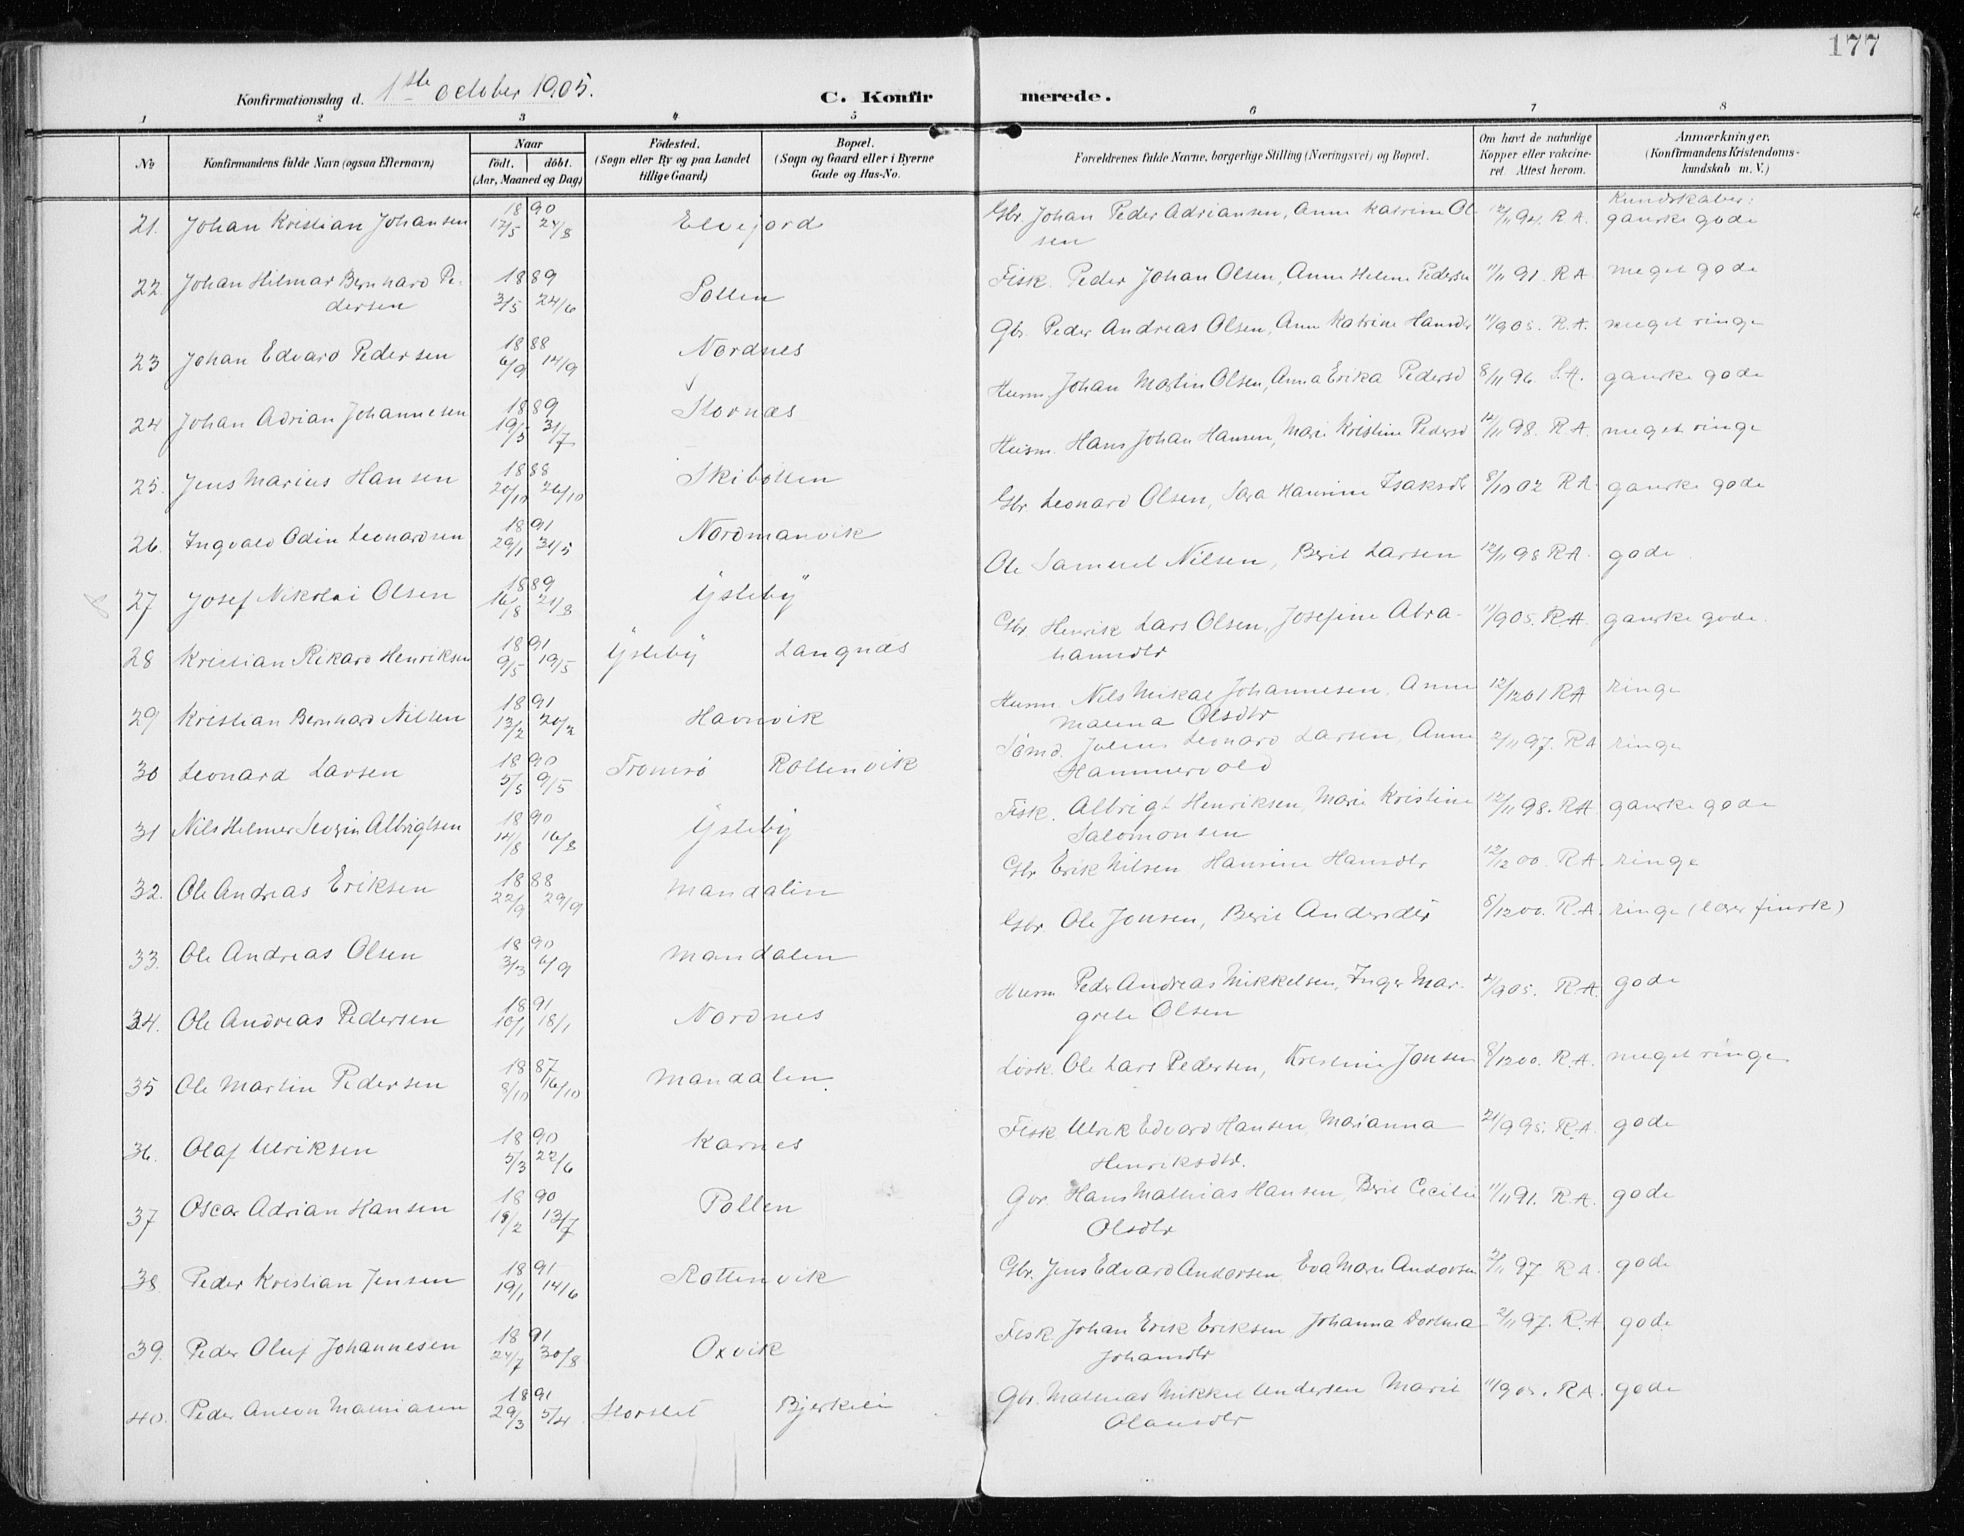 177
Konfirmationsdag d. 1ste october 1905.
C. Konfirmerede.
1 2 3 4 5 6 7 8
No
Konfirmandens fulde Navn (ogsaa Efternavn)
Naar
født. døbt.
(Aar, Maaned og Dag)
Fødested.
(Sogn eller By og paa Landet
tillige Gaard)
Bopæl.
(Sogn og Gaard eller i Byerne
Gade og Hus-No.
Forældrenes fulde Navne, borgerlige Stilling (Næringsvei) og Bopæl.
Om havt de naturlige
Kopper eller vakcine-
ret. Attest herom.
Anmærkninger.
(Konfirmandens Kristendoms-
kundskab m. V.)
Kundskaber:
21. Johan Kristian Johansen 1890 12/5 24/8 Elvejord Gbr. Johan Peder Adriansen, Anne Katrine Ol-
sen 12/11 94. R.A. ganske gode
22. Johan Hilmar Bernhard Pe-
dersen 1889 3/5 24/6 Pollen Fisk. Peder Johan Olsen, Anne Helene Pedersen 11/11 91. R.A. meget gode
23 Johan Edvard Pedersen 1888 6/9 14/9 Nordnes Gbr. Peder Andreas Olsen, Ane Katrine Hansdtr 11/9 05. R.A. meget ringe
24 Johan Adrian Johannesen 1889 19/5 31/7 Stornæs Husm. Johan Martin Olsen, Anna Erika Pedersd 8/11 96. S.A. ganske gode
25. Jens Marius Hansen 1888 20/10 26/10 Skibotten Husm. Hans Johan Hansen, Marie Kristine Pedersd 12/11 98. R.A. meget ringe
26. Ingvald Odin Leonardsen 1891 29/1 31/5 Nordmanvik Gbr. Leonard Olsen, Sara Hansine Isaksdtr 8/10 02 R.A. ganske gode
27 Josef Nikolai Olsen 1889 16/8 21/8 Ysteby Ole Samuel Nilsen, Berit Larsen 12/11 98 R.A. gode
28 Kristian Rikard Henriksen 1891 9/5 19/5 Ysteby Langnæs Gbr. Henrik Lars Olsen, Josefine Abra-
hamsdtr 11/9 05. R.A. ganske gode.
29 Kristian Bernhard Nilsen 1891 13/2 20/2 Havnvik Husm. Nils Mikal Johannesen, Anne
Malena Olsdtr 12/12 01 R.A ringe
30 Leonard Larsen 1890 5/3 9/5 Tromsø Rottenvik Sømd. Julius Leonard Larsen, Anne
Hammervold 2/11 97. R.A ringe
31 Nils Helmer Severin Albrigtsen 1890 14/8 16/8 Ysteby Fisk. Albrigt Henriksen, Marie Kristine
Salomonsen 12/11 98. R.A ganske gode
32. Ole Andreas Eriksen 1888 22/9 29/9 Mandalen Gbr. Erik Nilsen, Hansine Hansdtr 12/12 00. R.A. ringe
33. Ole Andreas Olsen 1890 3/3 6/9 Mandalen Gbr. Ole Jonsen, Berit Andersdtr 8/12 00. R.A. ringe (læser finsk)
34. Ole Andreas Pedersen 1891 10/1 18/1 Nordnes Husm Peder Andreas Mikkelsen, Inger Mar-
grete Olsen 4/9 05. R.A. gode
35 Ole Martin Pedersen 1887 8/10 16/10 Mandalen. Ole Lars Pedersen, Kristine Jonsen 8/12 00. R.A. meget ringe
36. Olaf Ulriksen 1890 5/3 22/6 Karnes Fisk. Ulrik Edvard Hansen, Marianna
Henriksdtr. 21/9 95. R.A. gode
37 Oscar Adrian Hansen 1890 18/2 13/7 Pollen Gbr. Hans Mathias Hansen, Berit Cecilie
Olsdtr 11/11 91. R.A. gode
38 Peder Kristian Jensen 1891 19/1 14/6 Rottenvik Gbr. Jens Edvard Andersen, Eva Marie Andersen 2/11 97 R.A. gode
39. Peder Oluf Johannesen 1891 24/7 30/8 Oxvik Fisk. Johan Erik Eriksen, Johanna Dortea
Johansdtr 2/11 97. R.A. gode
40. Peder Anton Mathiasen 1891 29/3 5/4 Storslet Bjerkeli Gbr. Mathias Mikkel Andersen Marit
Olausdtr 11/9 05. R.A. gode